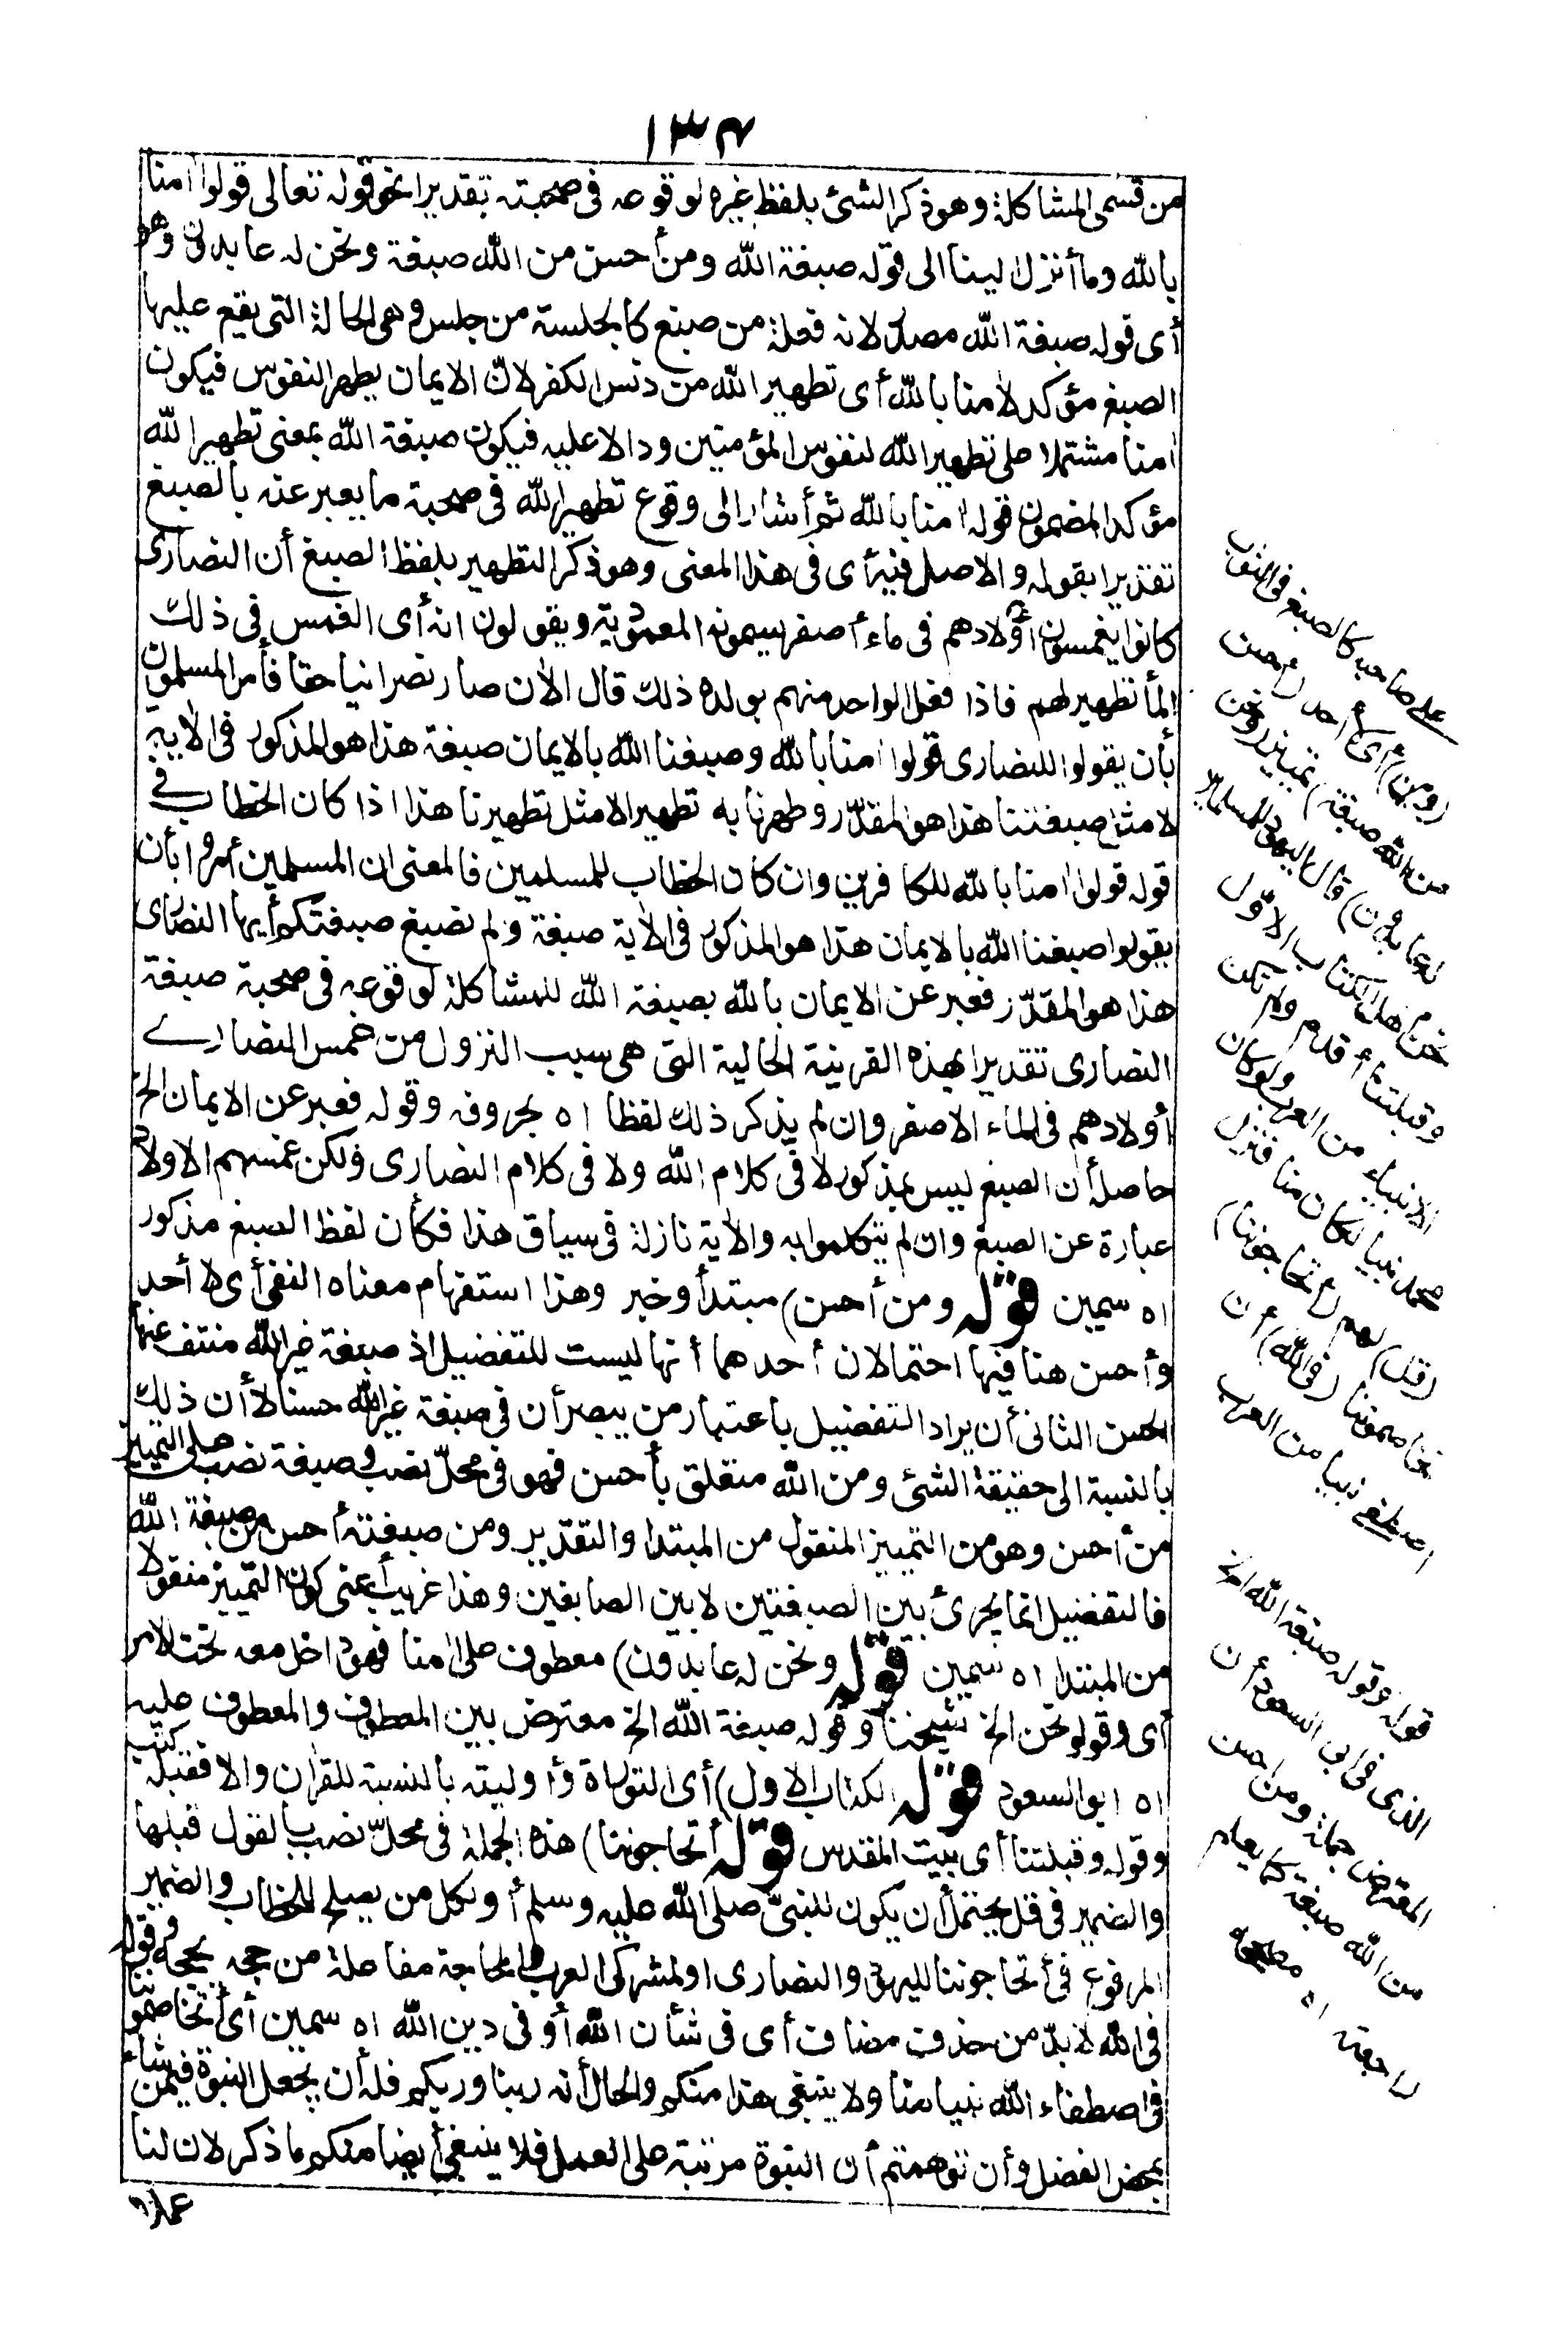 ١٣٤
من قسمى المشاكلة وهو ذكر الشئ بلفظ غيره لوقوعه فى صحبته تقديرا نحو قوله تعالى قولوا اٰمنا
بالله وما أنزل الينا الى قوله صبغة الله ومن أحسن من الله صبغة ونحن له عابدون وهو
أى قوله صبغة الله مصدر لانه فعلة من صبغ كالجلسة من جلس وهى الحالة التى يقع عليها
الصبغ مؤكد لاٰمنا بالله أى تطهير الله من دنس الكفر لانّ الايمان يطهر النفوس فيكون
اٰمنا مشتملا على تطهير الله لنفوس المؤمنين ودالا عليه فيكون صبغة الله بمعنى تطهير الله
مؤكدا لمضمون قوله اٰمنا بالله ثم أشار الى وقوع تطهير الله فى صحبة ما يعبر عنه بالصبغ
تقديرا بقوله والاصل فيه أى فى هذا المعنى وهو ذكر التطهير بلفظ الصبغ أن النصارى
كانوا يغمسون أولادهم فى ماء أصفر يسمونه المعمودية ويقولون انه أى الغمس فى ذلك
الماء تطهير لهم فاذا فعل الواحد منهم بولده ذلك قال الاٰن صار نصرانيا حقا فأمر المسلمون
بأن يقولوا للنصارى قولوا اٰمنا بالله وصبغنا الله بالايمان صبغة هذا هو المذكور فى الاٰية
لا مثل صبغتنا هذا هو المقدّر وطهرنا به تطهيرا لا مثل تطهيرنا هذا اذا كان الخطاب فى
قوله قولوا اٰمنا بالله للكافرين وان كان الخطاب للمسلمين فالمعنى ان المسلمين أمروا بأن
يقولوا صبغنا الله بالايمان هذا هو المذكور فى الاٰية صبغة ولم نصبغ صبغتكم أيها النصارى
هذا هو المقدّر فعبر عن الايمان بالله بصبغة الله للمشاكلة لوقوعه فى صحبة صبغة
النصارى تقديرا بهذه القرينة الحالية التى هى سبب النزول من غمس النصارى
أولادهم فى الماء الاصفر وان لم يذكر ذلك لفظا اه بحروفه وقوله فعبر عن الايمان الخ
حاصله أن الصبغ ليس بمذكور لا فى كلام الله ولا فى كلام النصارى ولكن غمسهم الاولاد
عبارة عن الصبغ وان لم يتكلموا به والاٰية نازلة فى سياق هذا فكأن لفظ الصبغ مذكور
اه سمين قوله ومن أحسن) مبتدأ وخبر وهذا استفهام معناه النفى أى لا أحد
وأحسن هنا فيها احتمالان أحدهما أنها ليست للتفضيل اذ صبغة غير الله منتف عنها
الحسن الثانى أن يراد التفضيل باعتبار من يبصر أن فى صبغة غير الله حسنا لا أن ذلك
بالنسبة الى حقيقة الشئ ومن الله متعلق بأحسن فهو فى محلّ نصب وصبغة نصب على التمييز
من أحسن وهو من التمييز المنقول من المبتدا والتقدير ومن صبغته أحسن من صبغة الله
فالتفضيل انما يجرى بين الصبغتين لا بين الصابغين وهذا غريب أعنى كون التمييز منقولا
من المبتدا اه سمين قوله ونحن له عابدون) معطوف على اٰمنا فهو داخل معه تحت الامر
أى وقولوا نحن الخ شيخنا وقوله صبغة الله الخ معترض بين المعطوف والمعطوف عليه
اه ابو السعود قوله الكتاب الاول) أى التوراة وأوليته بالنسبة للقراٰن والا فقبله كتب
وقوله وقبلتنا أى بيت المقدس قوله أتحاجوننا) هذه الجملة فى محلّ نصب بالقول قبلها
والضمير فى قل يحتمل أن يكون للنبىّ صلى الله عليه وسلم أو لكل من يصلح للخطاب والضمير
المرفوع فى أتحاجوننا لليهود والنصارى او لمشركى العرب والمحاجة مفاعلة من حجه يحجه وقوله
فى الله لا بدّ من حذف مضاف أى فى شأن الله أو فى دين الله اه سمين أى أتخاصموننا
فى اصطفاء الله نبيا منا ولا ينبغى هذا منكم والحال أنه ربنا وربكم فله أن يجعل النبوة فيمن شاء
بمحض الفضل وأن توهمتم أن النبوة مرتبة على العمل فلا ينبغى أيضا منكم ما ذكر لان لنا
على صاحبه كالصبغ فى الثوب
(ومن) أى لا أحد (أحسن
من الله صبغة) تمييز (ونحن
له عابدون) قال اليهود للمسلمين
نحن أهل الكتاب الاوّل
وقبلتنا أقدم ولم تكن
الانبياء من العرب ولو كان
محمد نبيا لكان منا فنزل
(قل) لهم (أتحاجوننا)
تخاصموننا (فى الله) أن
اصطفى نبيا من العرب
قوله وقوله صبغة الله الخ
الذى فى ابى السعود أن
المعترض جملة ومن احسن
من الله صبغة كما يعلم
راجعته اه